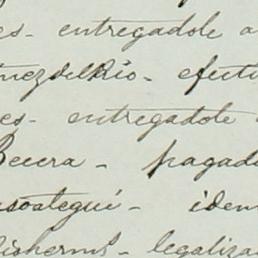 es- entregadole a
inezdelRio- efectu
es- entregadole
Becera- pagad
asoategui- iden
- legaliza